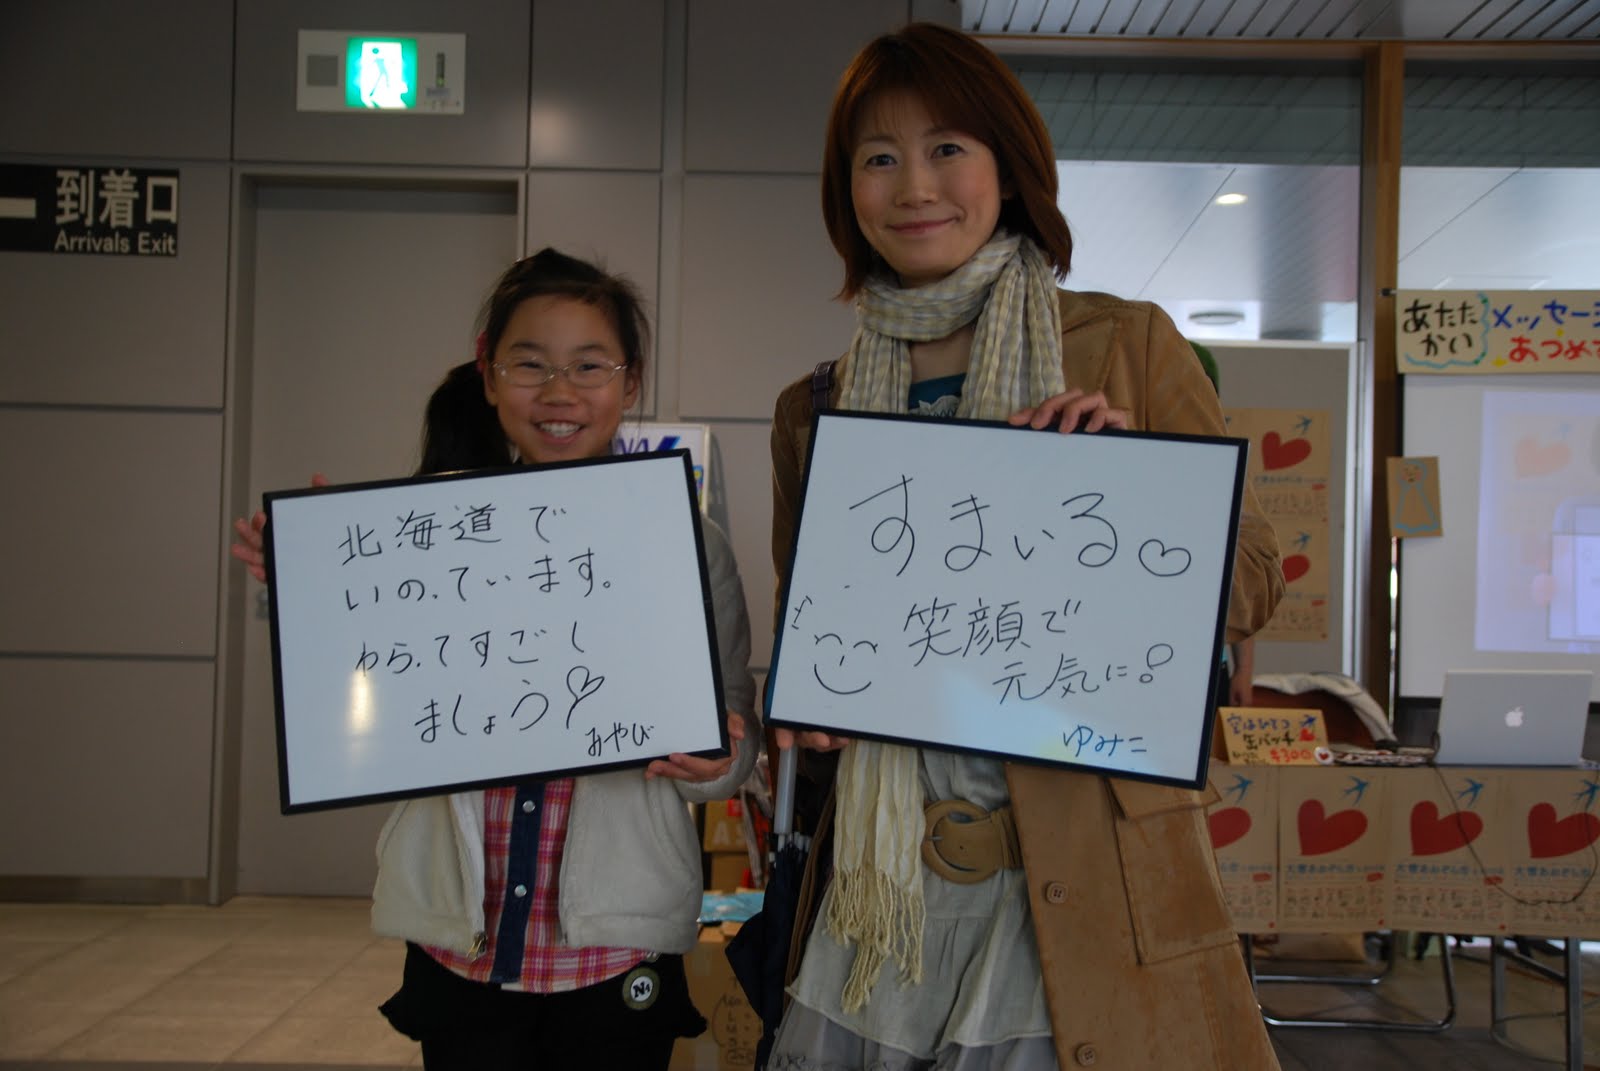 到着口
Arrivals Exit
北海道で
いのっています。
わらってすごし
ましょう
みやび
すまいる
笑顔で
元気に!
ゆみこ
あたた
かい
メッセージ
あつめ
空はひとつ
缶バッチ
¥300